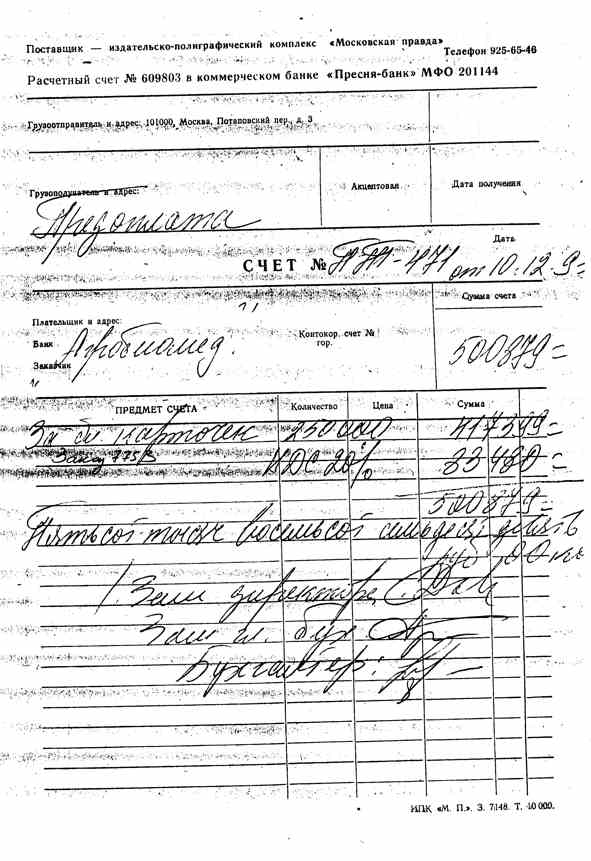 Поставщик — издательско-полиграфический комплекс «Московская правда»
Телефон 925-65-46
Расчетный счет № 609803 в коммерческом банке «Пресня-банк» МФО 201144
Грузоотправитель и адрес: 101000, Москва, Потаповский пер., д. 3
Грузополучатель и адрес:
Акцептован
Дата получения
Предоплата
Дата
СЧЕТ № -471 от 10.12.9
Сумма счета
Плательщик и адрес:
Банк
Заказчик
Агробиомед.
Контокор. счет №
гор.
500879=
ПРЕДМЕТ СЧЕТА Количество Цена Сумма
За бл карточек 250000 417399=
Заказ 775 НДС 20% 83480=
500879=
Пятьсот тысяч восемьсот семьдесят девять
руб 00 коп
Зам директора
Зам гл. бух
Бухгалтер:
ИПК «М. П.». З. 7148. Т. 40 000.